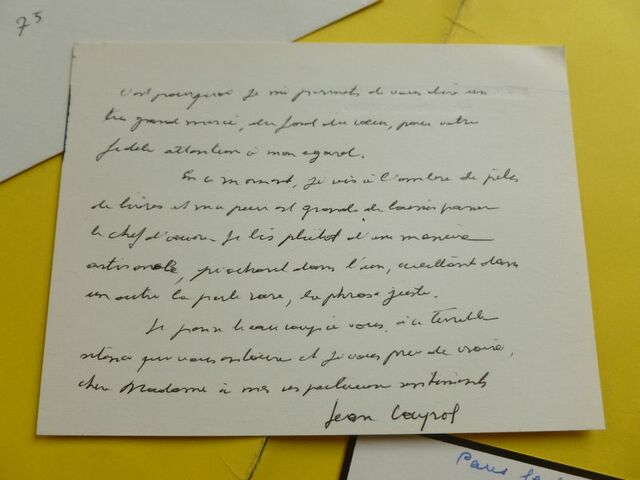 75
C'est pourquoi je me permets de vous dire un
très grand merci, du fond du cœur, pour votre
fidèle attention à mon égard.
En ce moment, je vis à l'ombre de piles
de livres et ma peur est grande de laisser passer
le chef d'œuvre. Je lis plutôt d'une manière
artisanale, piochant dans l'un, cueillant dans
un autre la perle rare, la phrase juste.
Je pense beaucoup à vous, à ce terrible
silence qui vous entoure et je vous prie de croire,
chère Madame à mes respectueux sentiments
Jean Cayrol
Paris